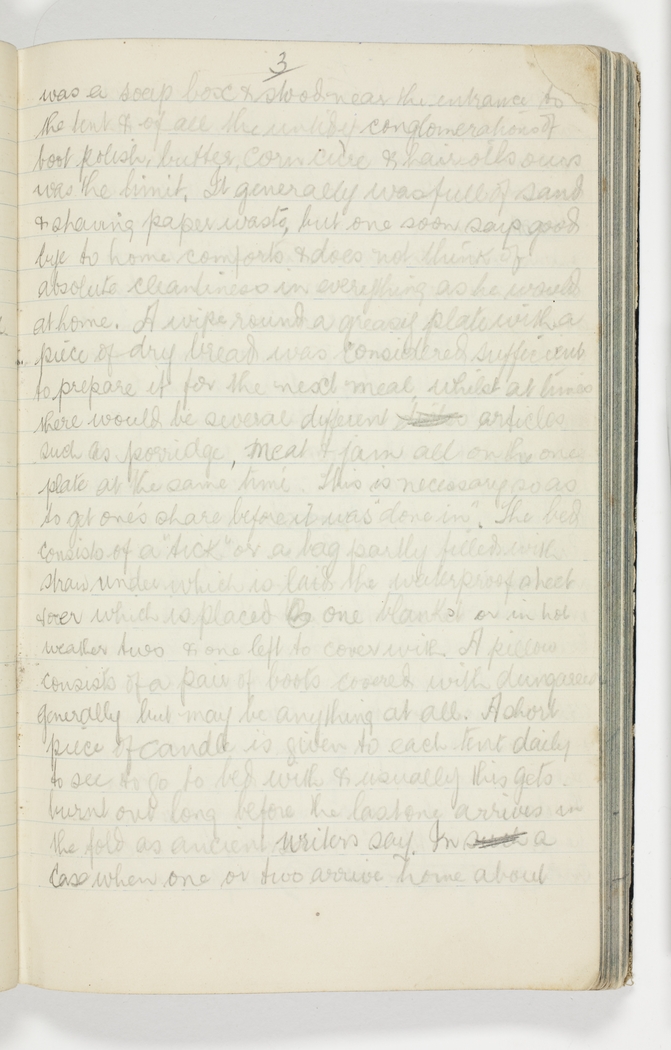 3
was a soap box & stood near the entrance to
the tent & of all the untidy conglomerations of
boot polish, butter, corn cure & hair oils ours
was the limit. It generally was full of sand
& shaving paper waste, but one soon says good
bye to home comforts & does not think of
absolute cleanliness in everything as he would
at home. A wipe round a greasy plate with a
piece of dry bread was considered sufficient
to prepare it for the next meal whilst at times
there would be several different articles
such as porridge, meat & jam all on the one
plate at the same time. This is necessary so as
to get one's share before it was "done in". The bed
consists of a "tick" or a bag partly filled with
straw under which is laid the waterproof sheet
over which is placed one blanket or in hot
weather two & one left to cover with. A pillow
consists of a pair of boots covered with dungarees
generally but may be anything at all. A short
piece of candle is given to each tent daily
to see to go to bed with & usually this gets
burnt out long before the last one arrives in
the fold as ancient writers say. In a
case when one or two arrive home about